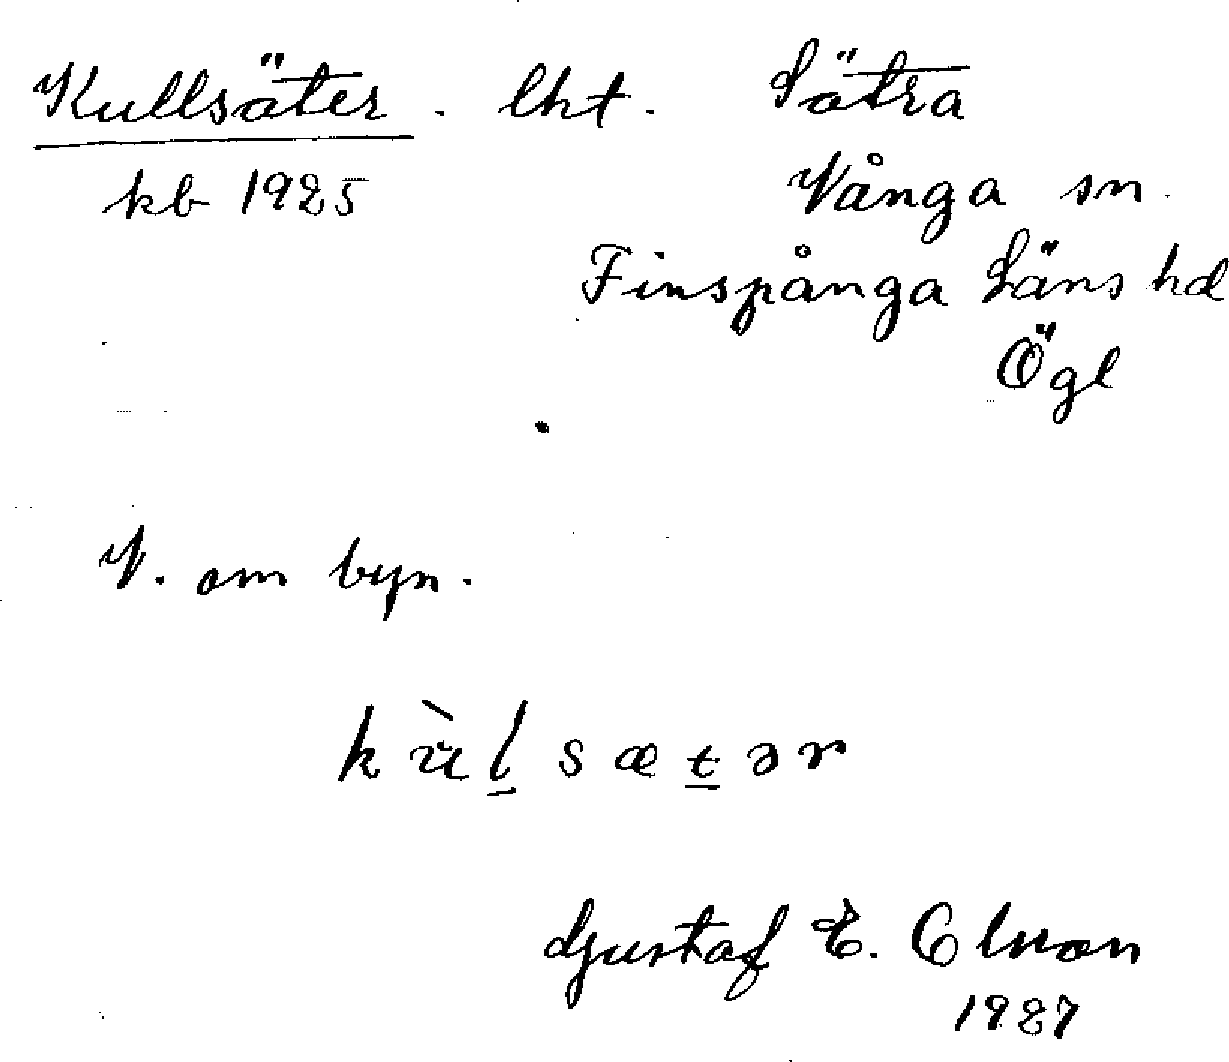 Kullsäter. lht. Sätra
kb 1925 Vånga sn.
Finspånga Läns hd
Ögl
V. om byn.
kùl̠sæt̠ər
Gustaf E. Olsson
1927